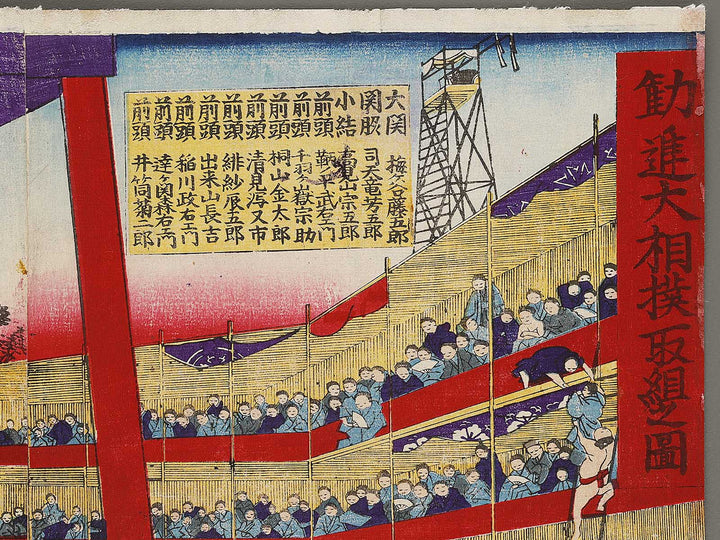 勧進大相撲取組之圖
大関 梅ヶ谷藤五郎
関脇 司天竜芳五郎
小結 山宗五郎
前頭 武左エ門
前頭 千羽ヶ嶽宗助
前頭 桐山金太郎
前頭 清見潟又市
前頭 緋紗辰五郎
前頭 出来山長吉
前頭 稲川政右エ門
前頭 達ヶ関森右エ門
前頭 井筒菊二郎